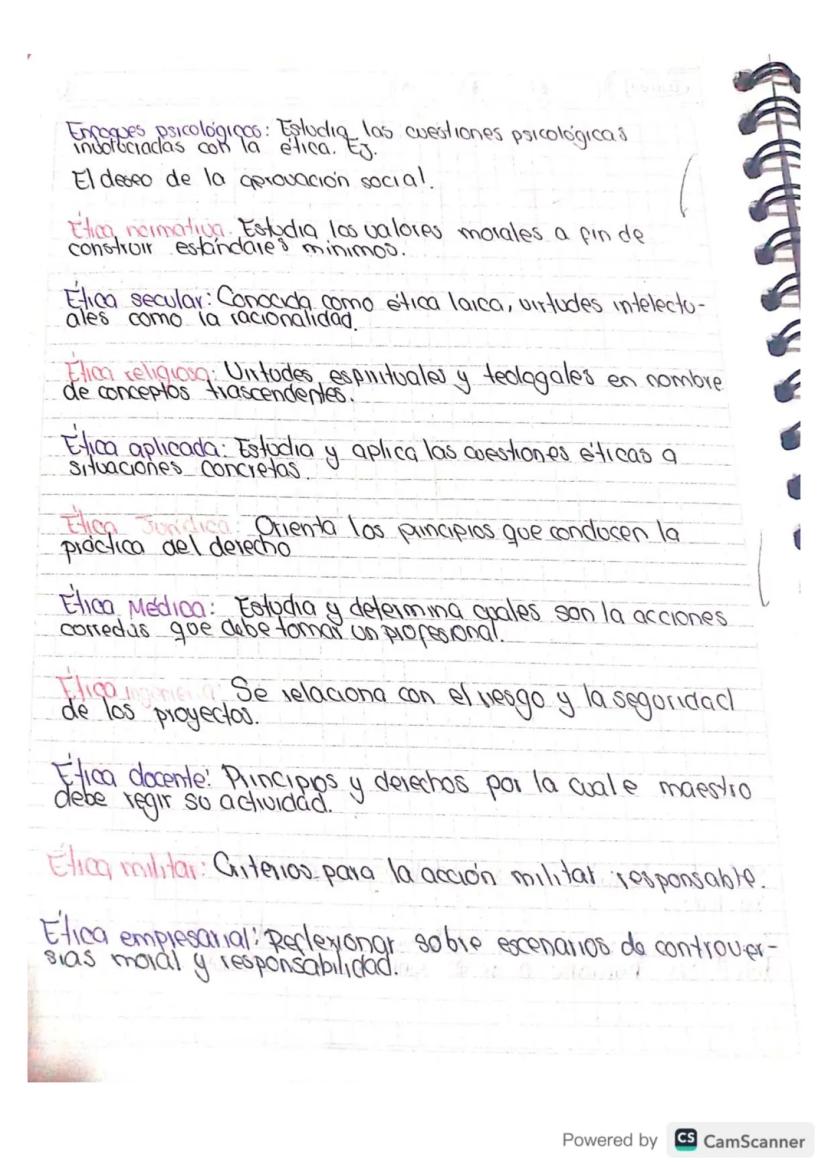 Enfoques psicológicos: Estudia las cuestiones psicológicas
involociadas con la ética. Ej.
El deseo de la aprovación social.
Ética normativa. Estudia los valores morales a fin de
construir estándares mínimos.
Ética secular: Conocida como ética laica, virtudes intelectu-
ales como la racionalidad.
Ética religiosa: Virtudes espirituales y teologales en nombre
de conceptos trascendentes.
Ética aplicada: Estudia y aplica las cuestiones éticas a
situaciones concretas.
Ética Jurídica: Orienta los principios que conducen la
práctica del derecho
Ética Médica: Estudia y determina cuales son la acciones
correctas que debe tomar un profesional.
Ética ingeniería: Se relaciona con el riesgo y la seguridad
de los proyectos.
Ética docente: Principios y derechos por la cual e maestro
debe regir su actividad.
Ética militar: Criterios para la acción militar responsable.
Ética empresarial: Reflexionar sobre escenarios de controver-
sias moral y responsabilidad.
Powered by CS CamScanner